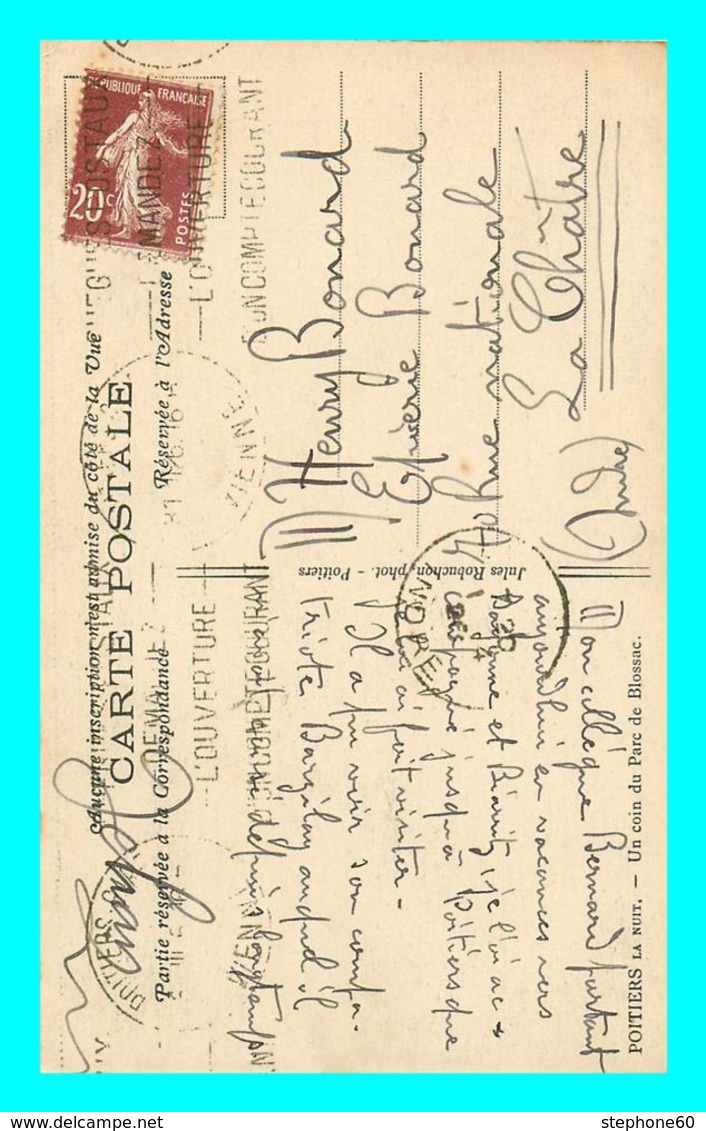 Aucune inscription n'est admise du côté de la Vue
CARTE POSTALE
Partie réservée à la Correspondance
Réservée à l'Adresse
RÉPUBLIQUE FRANÇAISE
20c
POSTES
DEMANDEZ
L'OUVERTURE
D'UN COMPTE COURANT
POITIERS
VIENNE
Jules Robuchon, phot. - Poitiers
POITIERS LA NUIT. — Un coin du Parc de Blossac.
Mon collègue Bernard partant
aujourd'hui en vacances vers
Bayonne et Biarritz, je l'ai ac-
compagné jusqu'à Poitiers que
je lui ai fait visiter -
Il a pu voir son compa-
triote Barzilay auquel il
depuis longtemps
Henry Bonard
Epicerie Bonard
Rue nationale
La Châtre
(Indre)
stephone60